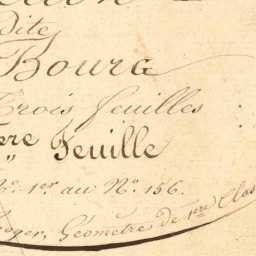 dite
Bourg
Trois feuilles :
ere Feuille
No. 1er. au No. 156.
Géomètre de 1ère Clas